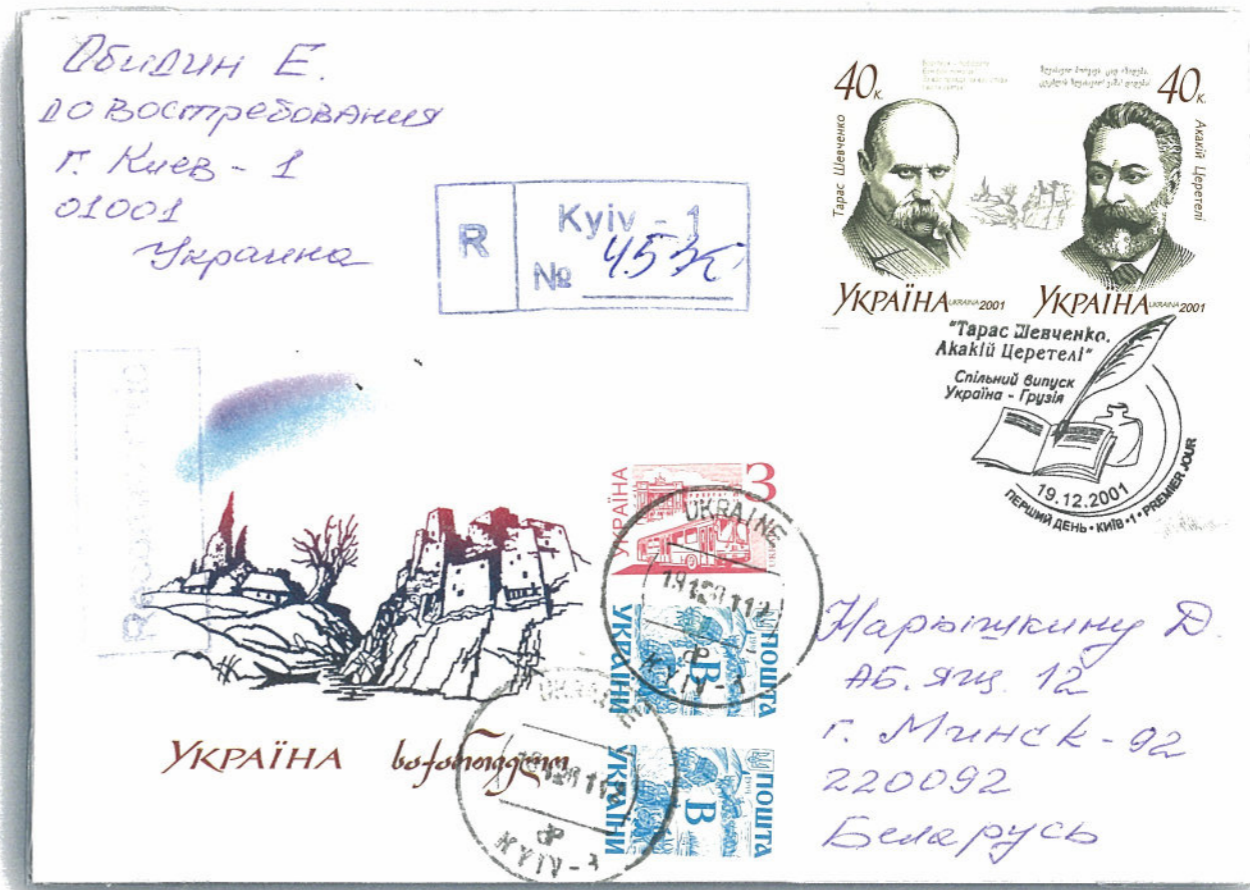 Обидин Е.
до востребования
г. Киев - 1
01001
Украина
R
Kyiv - 1
№ 45 Ж
40 к.
40 к.
Тарас Шевченко
Акакій Церетелі
УКРАЇНА UKRAINA 2001
УКРАЇНА UKRAINA 2001
"Тарас Шевченко.
Акакій Церетелі"
Спільний випуск
Україна - Грузія
19.12.2001
ПЕРШИЙ ДЕНЬ • КИЇВ • 1 • PREMIER JOUR
УКРАЇНА
3
UKRAINE
KYIV - 3
ПОШТА
В
УКРАЇНИ
ПОШТА
В
УКРАЇНИ
KYIV - 3
УКРАЇНА საქართველო
Нарышкину Д.
аб. ящ. 12
г. Минск - 92
220092
Беларусь